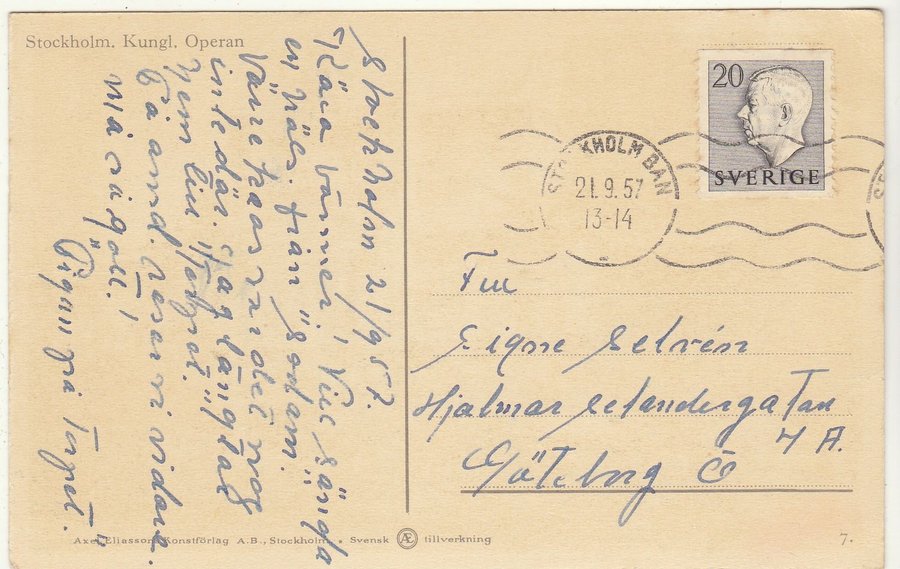 Stockholm. Kungl. Operan
Stockholm 21/9 57.
Kära vänner! Vill sända
en häls. från "Sodam".
Värre kaos vi det nog
inte där. Jag längtar
hem till "Torpet."
På ond. resar vi vidare.
Må så gott!
"Pigan på Torpet."
20
SVERIGE
STOCKHOLM BAN
21.9.57
13-14
Fru
Signe Selvén
Hjalmar Selandergatan
4 A.
Göteborg Ö
Axel Eliassons Konstförlag A.B., Stockholm. • Svensk Æ tillverkning
7.